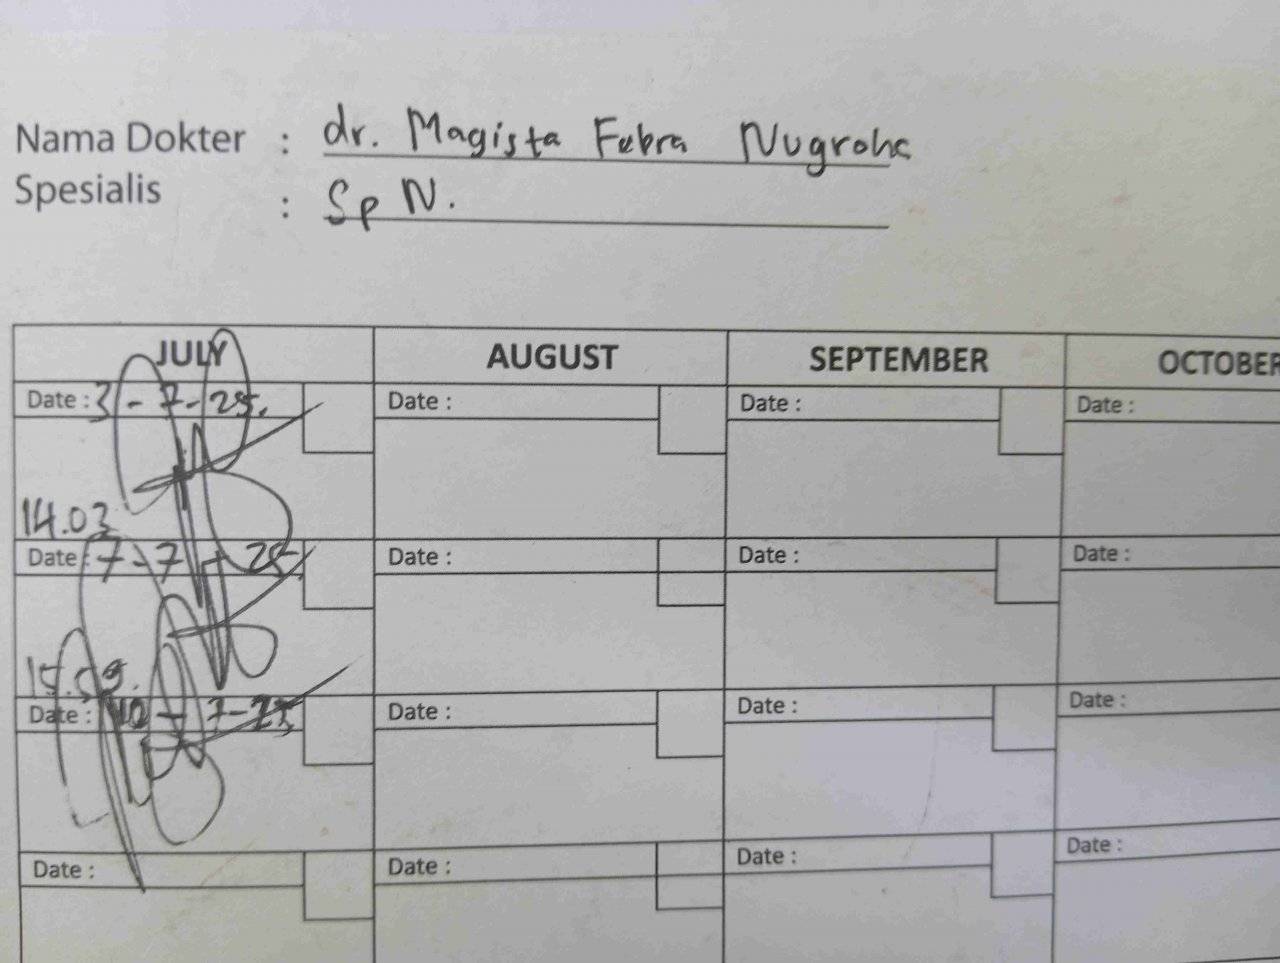 Nama Dokter : dr. Magista Febra Nugroho
Spesialis : Sp N.
JULY AUGUST SEPTEMBER OCTOBER
Date : 3 - 7 - 25. Date : Date : Date :
14.03
Date : 7 - 7 - 25 Date : Date : Date :
15.59.
Date : 10 - 7 - 25 Date : Date : Date :
Date : Date : Date : Date :